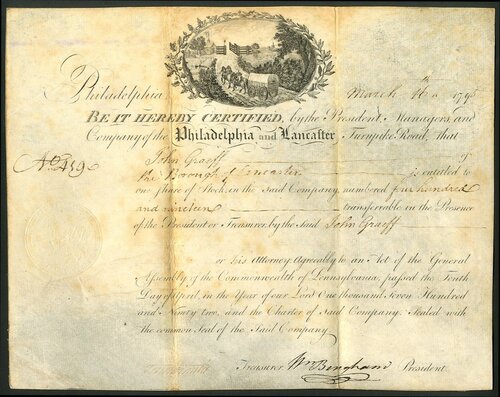 Philadelphia March 16th 1795
BE IT HEREBY CERTIFIED, by the President, Managers and
Company of the Philadelphia and Lancaster Turnpike Road, that
John Graeff of
No. 419
the Borough of Lancaster is entitled to
one share of Stock, in the Said Company, numbered four hundred
and nineteen transferrable in the Presence
of the President or Treasurer, by the Said John Graeff
or his Attorney Agreeably to an Act of the General
Assembly of the Commonwealth of Pennsylvania, passed the Ninth
Day of April, in the Year of our Lord One thousand Seven Hundred
and Ninety two, and the Charter of Said Company. Sealed with
the common Seal of the Said Company.
Treasurer Wm Bingham President.